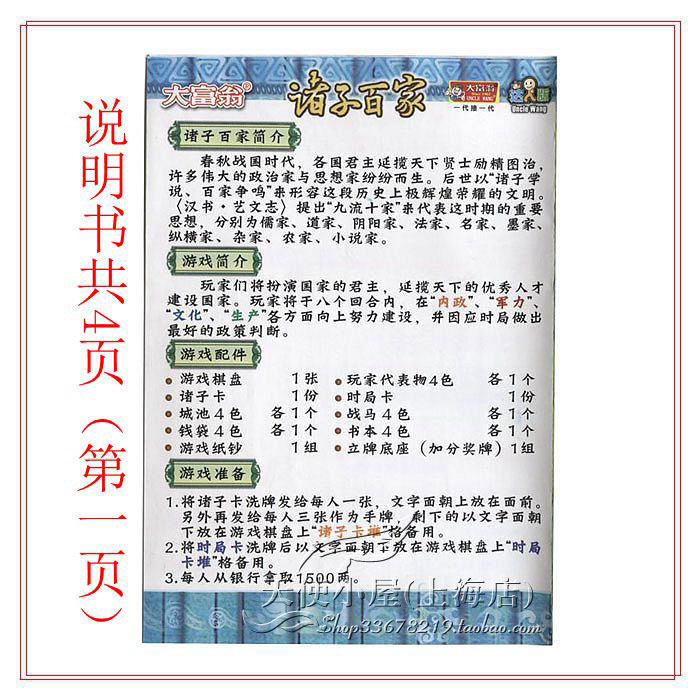 说明书共4页（第一页）
大富翁®
诸子百家
大富翁
UNCLE WANG
一代接一代
达人版
Uncle Wang
诸子百家简介
春秋战国时代，各国君主延揽天下贤士励精图治，
许多伟大的政治家与思想家纷纷而生。后世以“诸子学
说、百家争鸣”来形容这段历史上极辉煌荣耀的文明。
〈汉书·艺文志〉提出“九流十家”来代表这时期的重要
思想，分别为儒家、道家、阴阳家、法家、名家、墨家、
纵横家、杂家、农家、小说家。
游戏简介
玩家们将扮演国家的君主，延揽天下的优秀人才
建设国家。玩家将于八个回合内，在“内政”、“军力”、
“文化”、“生产”各方面向上努力建设，并因应时局做出
最好的政策判断。
游戏配件
·游戏棋盘 1张 ·玩家代表物4色 各1个
·诸子卡 1份 ·时局卡 1份
·城池4色 各1个 ·战马4色 各1个
·钱袋4色 各1个 ·书本4色 各1个
·游戏纸钞 1组 ·立牌底座（加分奖牌）1组
游戏准备
1.将诸子卡洗牌发给每人一张，文字面朝上放在面前。
另外再发给每人三张作为手牌，剩下的以文字面朝
下放在游戏棋盘上“诸子卡堆”格备用。
2.将时局卡洗牌后以文字面朝下放在游戏棋盘上“时局
卡堆”格备用。
3.每人从银行拿取1500两。
天使小屋(上海店)
Shop33678219.taobao.com